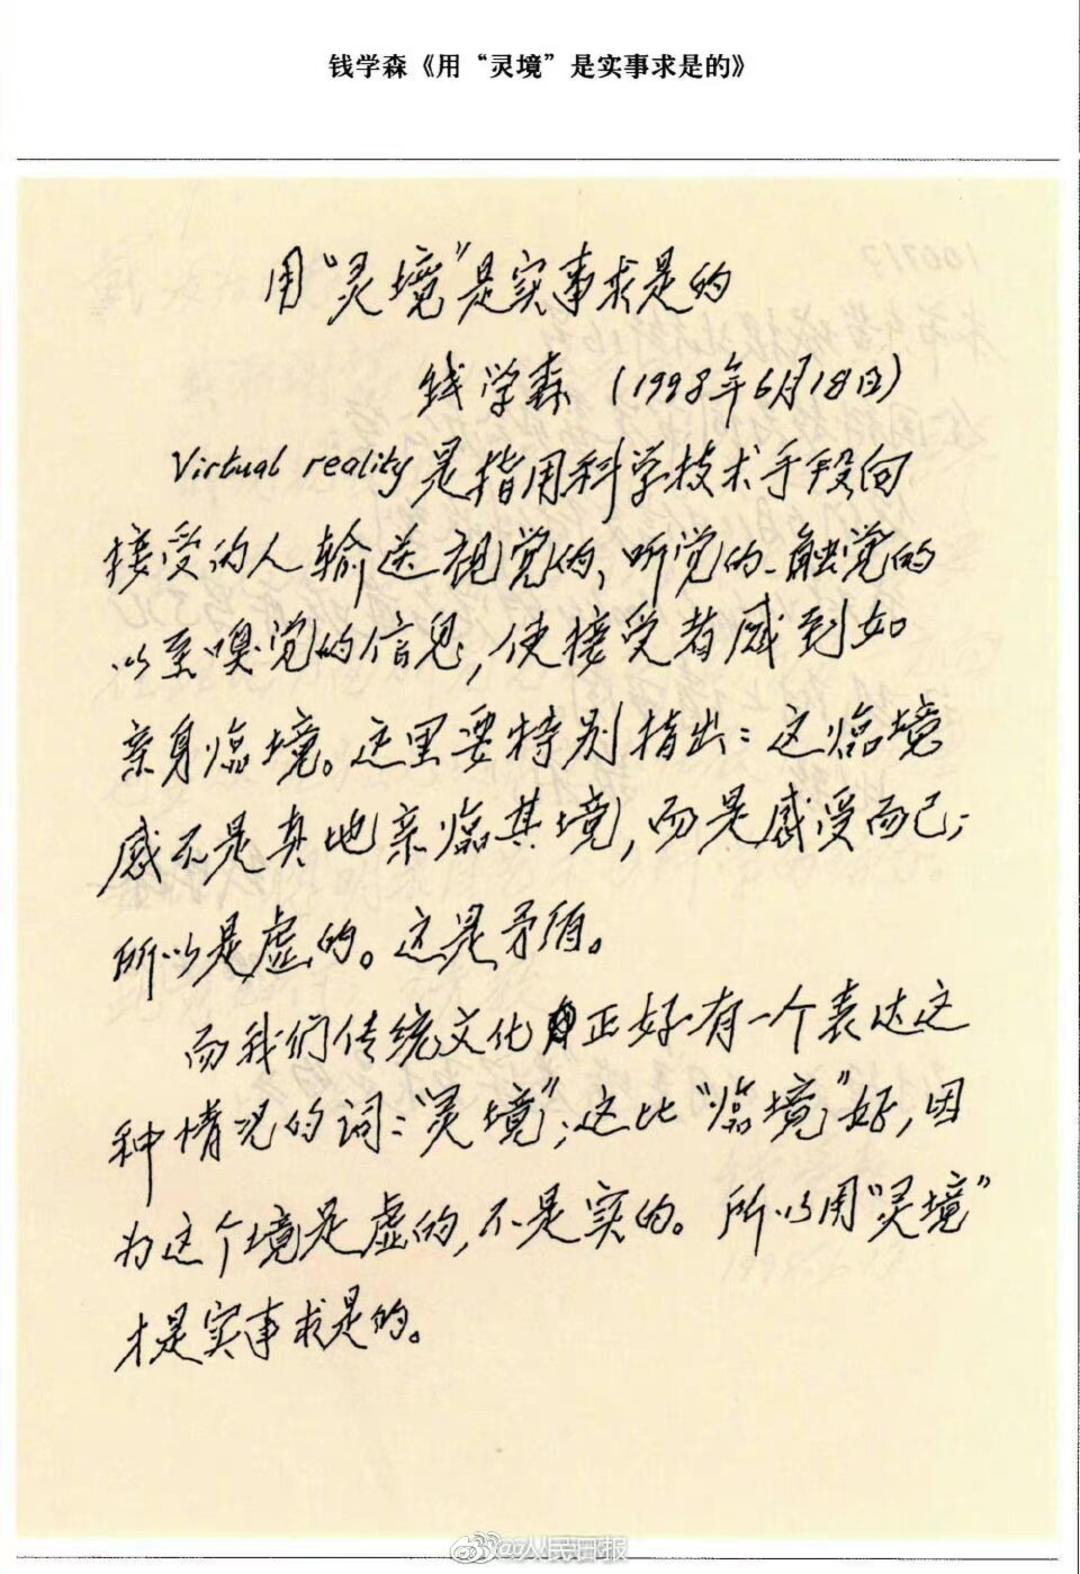 钱学森《用“灵境”是实事求是的》
用“灵境”是实事求是的
钱学森（1998年6月18日）
Virtual reality是指用科学技术手段向
接受的人输送视觉的、听觉的、触觉的
以至嗅觉的信息，使接受者感到如
亲身临境。这里要特别指出：这临境
感不是真地亲临其境，而是感受而已；
所以是虚的。这是矛盾。
而我们传统文化正好有一个表达这
种情况的词：“灵境”；这比“临境”好，因
为这个境是虚的，不是实的。所以用“灵境”
才是实事求是的。
@人民日报